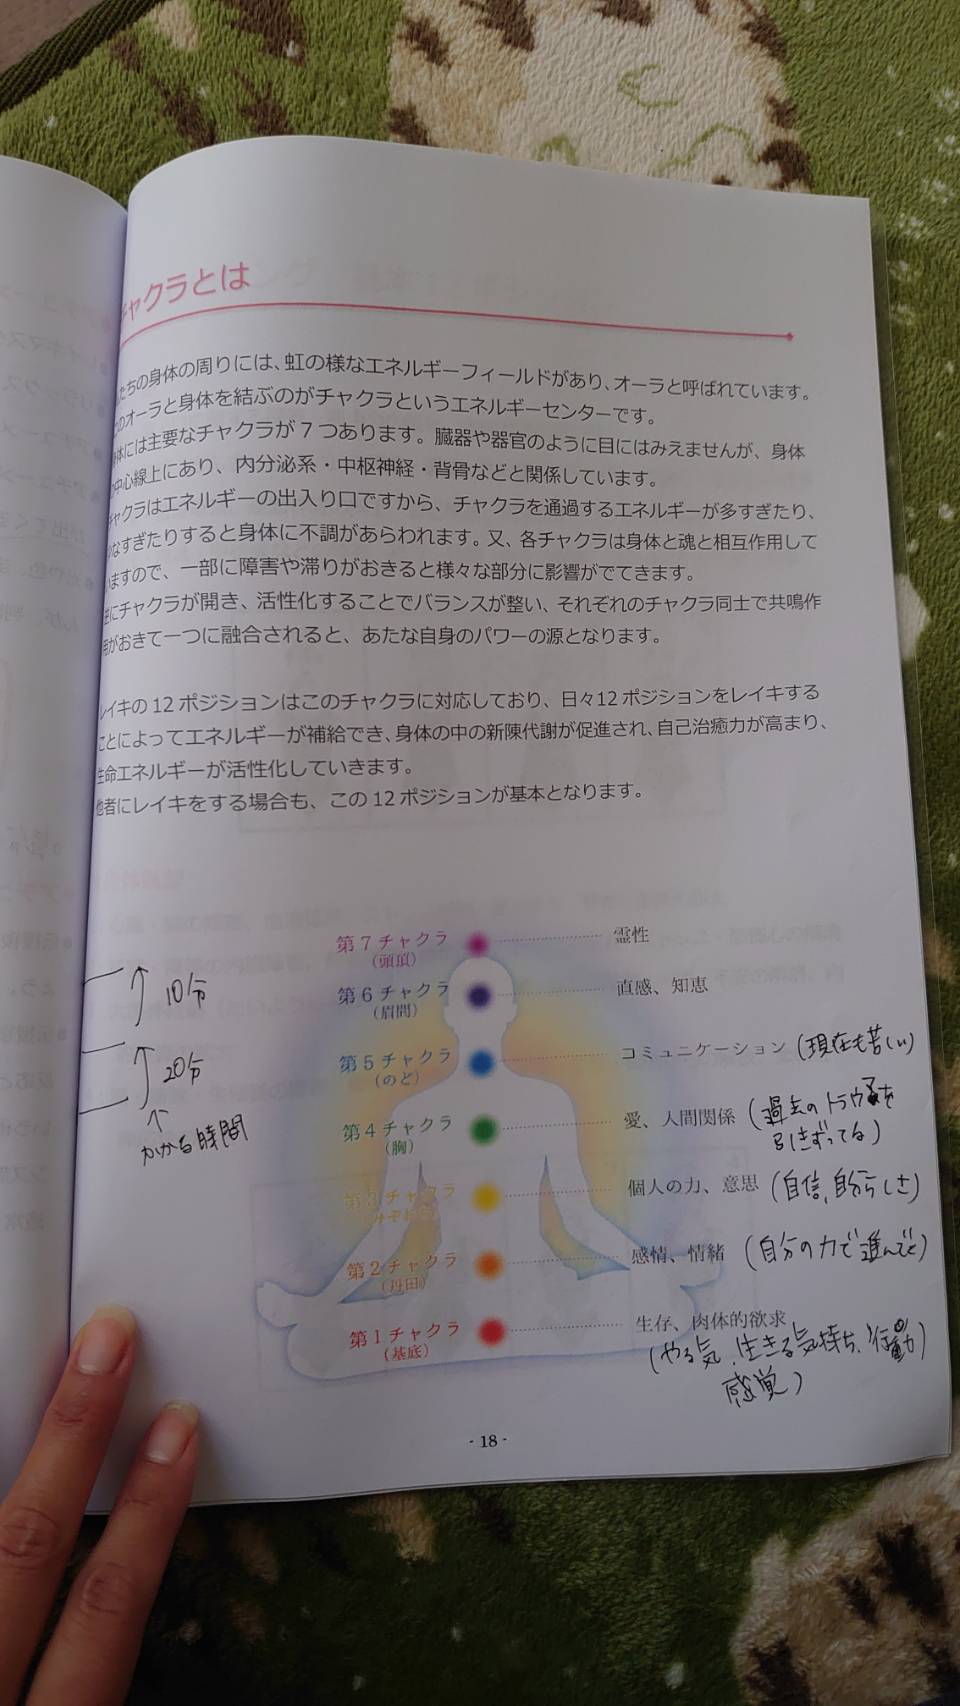 チャクラとは
たちの身体の周りには、虹の様なエネルギーフィールドがあり、オーラと呼ばれています。
のオーラと身体を結ぶのがチャクラというエネルギーセンターです。
体には主要なチャクラが7つあります。臓器や器官のように目にはみえませんが、身体
中心線上にあり、内分泌系・中枢神経・背骨などと関係しています。
チャクラはエネルギーの出入り口ですから、チャクラを通過するエネルギーが多すぎたり、
なすぎたりすると身体に不調があらわれます。又、各チャクラは身体と魂と相互作用して
いますので、一部に障害や滞りがおきると様々な部分に影響がでてきます。
にチャクラが開き、活性化することでバランスが整い、それぞれのチャクラ同士で共鳴作
用がおきて一つに融合されると、あたな自身のパワーの源となります。
レイキの12ポジションはこのチャクラに対応しており、日々12ポジションをレイキする
ことによってエネルギーが補給でき、身体の中の新陳代謝が促進され、自己治癒力が高まり、
生命エネルギーが活性化していきます。
他者にレイキをする場合も、この12ポジションが基本となります。
第7チャクラ 霊性
(頭頂)
第6チャクラ 直感、知恵
(眉間)
10分
第5チャクラ コミュニケーション (現在も苦しい)
(のど)
20分
第4チャクラ 愛、人間関係 (過去のトラウマを
(胸) 引きずってる)
かかる時間
第3チャクラ 個人の力、意思 (自信、自分らしさ)
みぞおち
第2チャクラ 感情、情緒 (自分の力で進んでく)
(丹田)
第1チャクラ 生存、肉体的欲求
(基底) (やる気、生きる気持ち、行動力
感覚)
- 18 -